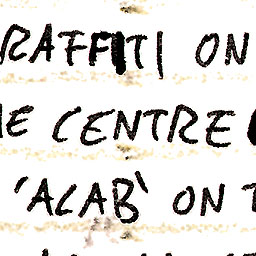 RAFFITI ON
E CENTRE
'ACAB' ON T